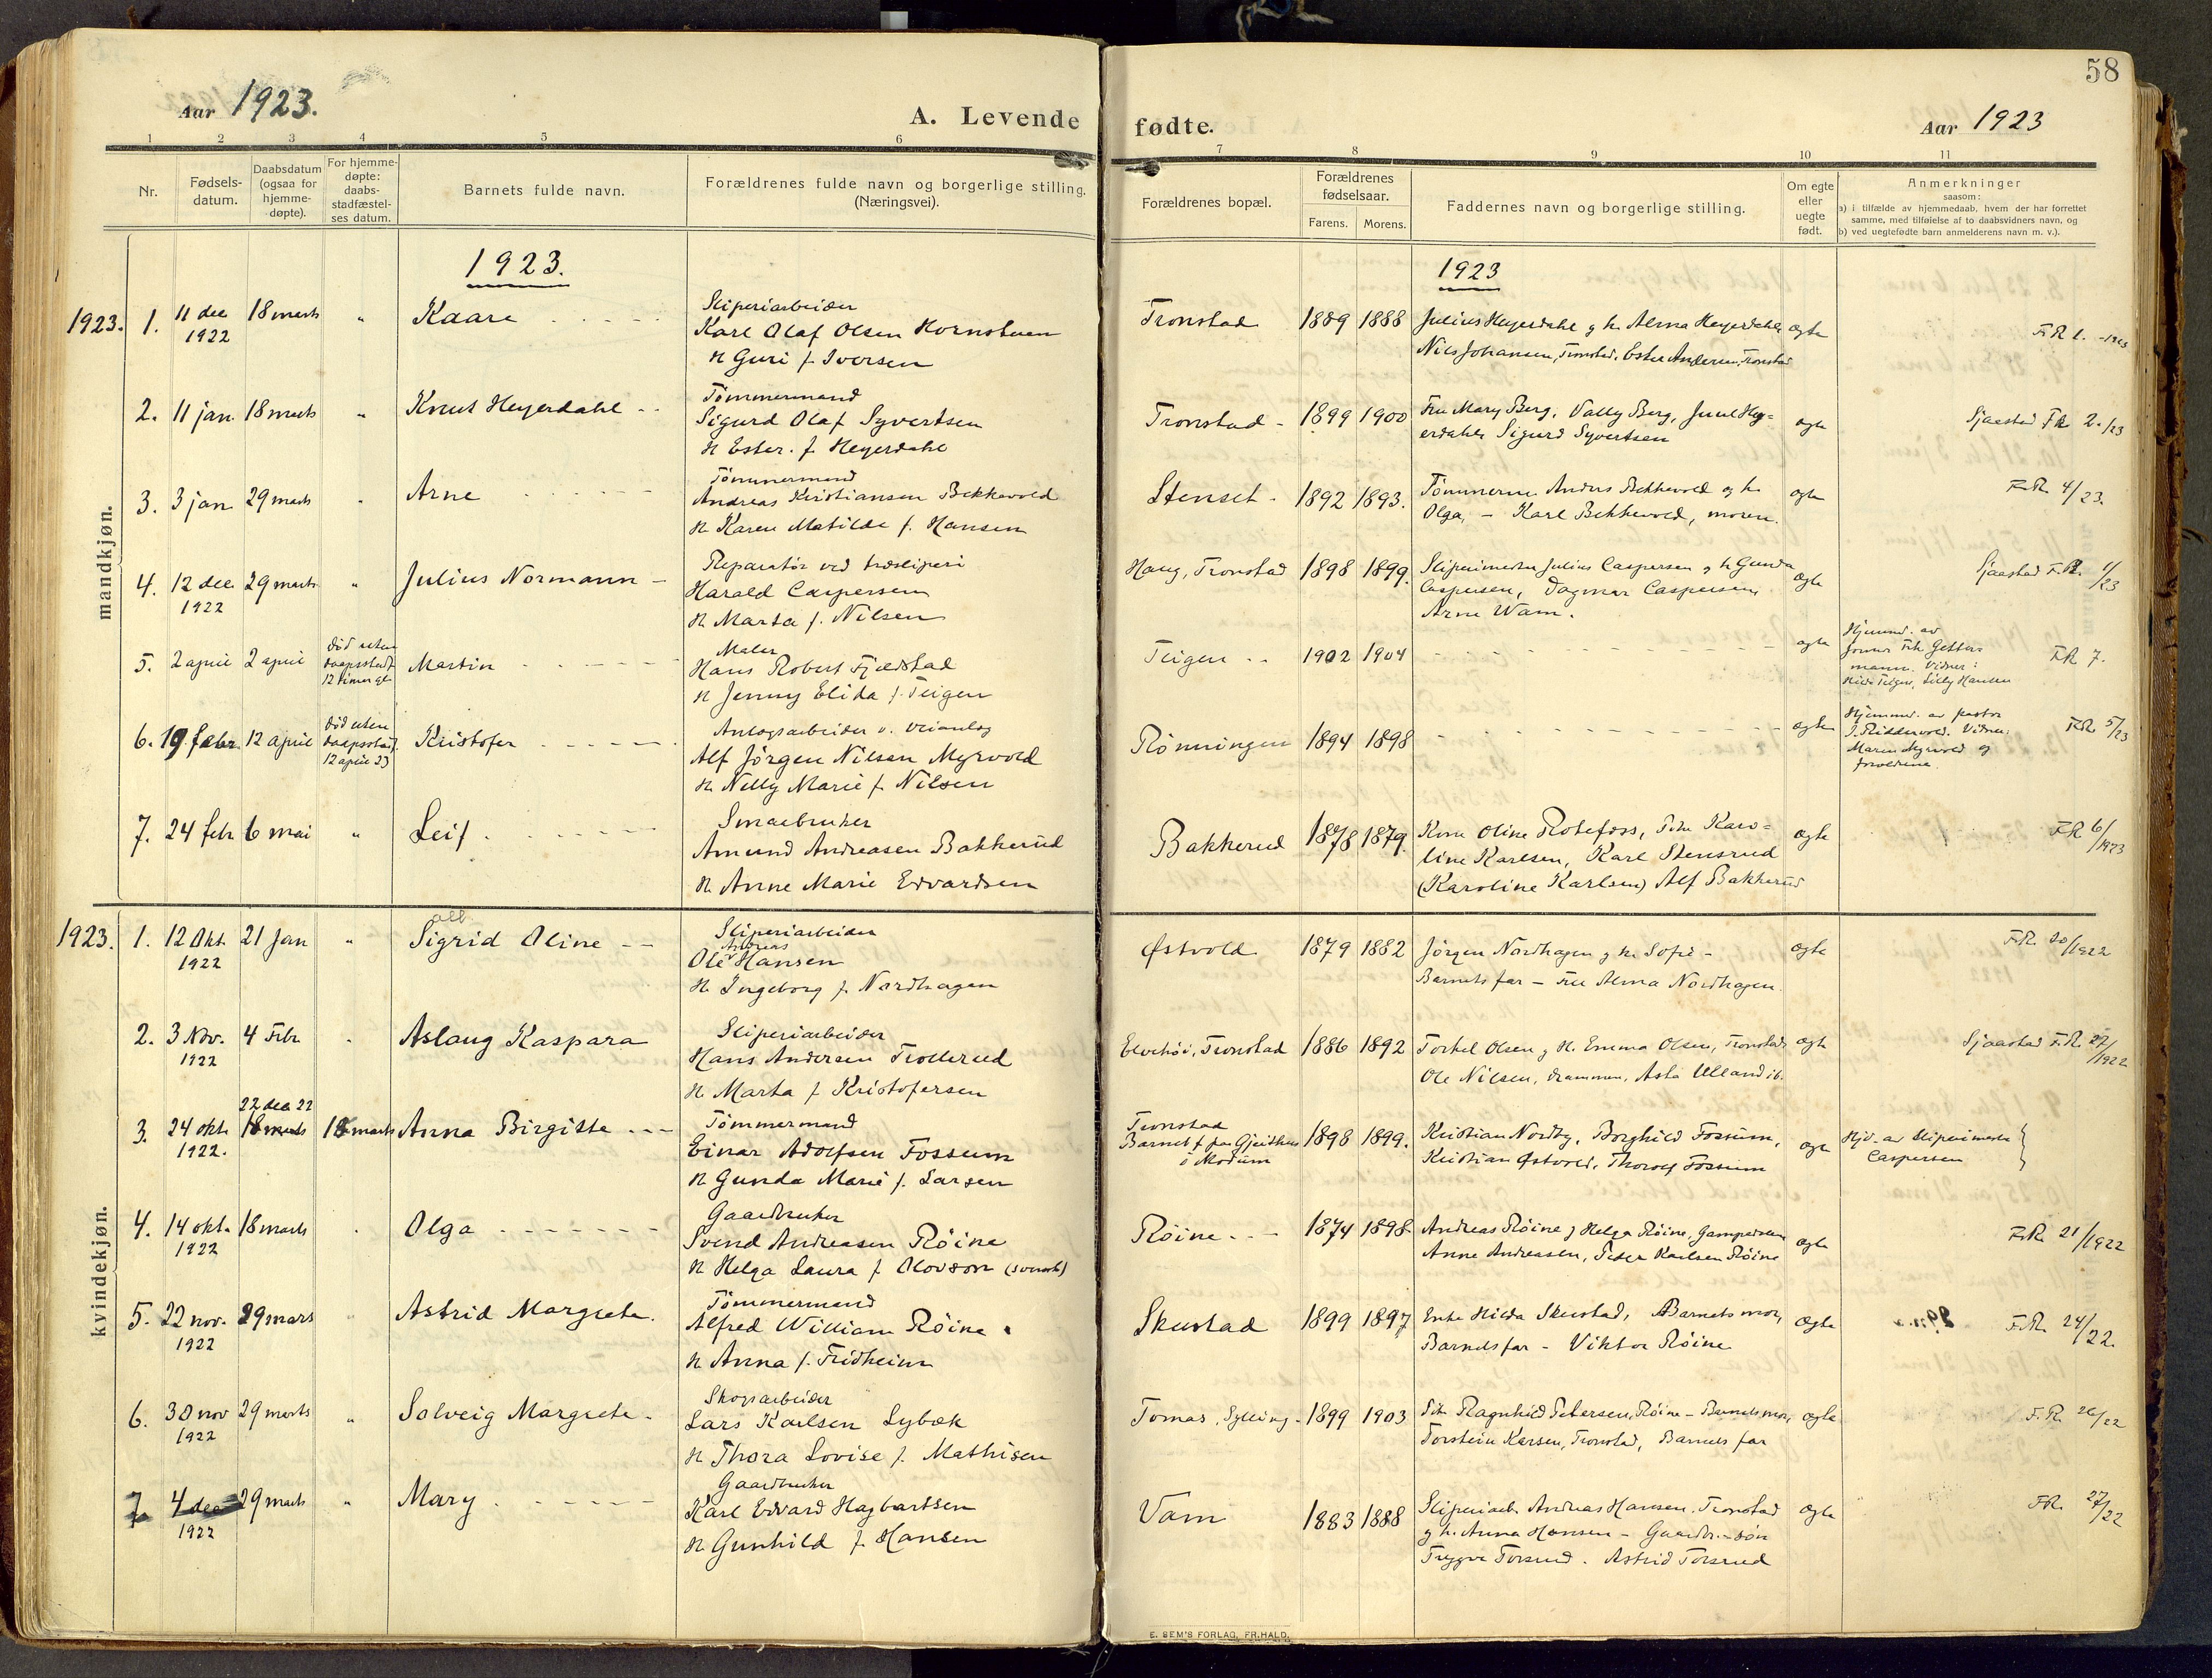 58
Aar 1923.
A. Levende fødte.
Aar 1923
1 2 3 4 5 6 7 8 9 10 11
Nr.
Fødsels-
datum.
Daabsdatum
(ogsaa for
hjemme-
døpte).
For hjemme-
døpte:
daabs-
stadfæstel-
ses datum.
Barnets fulde navn.
Forældrenes fulde navn og borgerlige stilling.
(Næringsvei).
Forældrenes bopæl.
Forældrenes
fødselsaar.
Farens. Morens.
Faddernes navn og borgerlige stilling.
Om egte
eller
uegte
født.
Anmerkninger
saasom:
a) i tilfælde av hjemmedaab, hvem der har forrettet
samme, med tilføielse af to daabsvidners navn, og
b) ved uegtefødte barn anmelderens navn m. v.).
mandkjøn.
1923.
1923
1923. 1. 11 dec 1922 18 marts " Kaare
Sliperiarbeider
Karl Olaf Olsen Hornstuen
H Guri f. Iversen
Tronstad 1889 1888
Julius Heyerdahl g h. Alma Heyerdahl
Nils Johansen, Tronstad, Ester Andersen, Tronstad
egte
F.R. 1. -1923
2. 11 jan. 18 marts " Knut Heyerdahl
Tömmermand
Sigurd Olaf Syvertsen
H Ester. f Heyerdahl
Tronstad - 1899 1900
Fru Mary Berg, Vally Berg, Juul Hey=
erdahl, Sigurd Syvertsen
egte
Sjaastad F.R. 2./23
3. 3 jan 29 marts Arne
Tömmermand
Andreas Kristiansen Bekkevold
H Karen Matilde f. Hansen
Stenset - 1892 1893.
Tömmerm. Anders Bekkevold og h.
Olga, - Karl Bekkevold, moren.
egte
F.R. 4/23.
4. 12 dec 1922 29 marts " Julius Normann -
Reparatör ved træsliperi
Harald Caspersen
H. Marta f. Nilsen
Haug, Tronstad 1898 1899.
Sliperimester Julius Caspersen g h Gunda
Caspersen, Dagmar Caspersen,
Arne Wam.
egte
Sjaastad F.R. 1/23
5. 2 april 2 april
död uten
daapsstadf.
12 timer gl.
Martin
Maler
Hans Robert Fjeldstad
H Jenny Elida f. Teigen
Teigen 1902 1904
egte
Hjemmd. av
Frk Getter
mann. Vidner:
Teigen, Lilly Hansen
F.R. 7.
6. 19 febr 12 april
död uten
daapsstadf.
12 april 23
Kristofer
Anlægsarbeider v. veianlæg
Alf Jörgen Nilsen Myrvold
H. Nelly Marie f. Nilsen
Rönningen 1894 1898
egte
Hjemmd. av pastor
J. Riddervold. Vidner:
Maren Myrvold og
forældrene.
F.R. 5/23
7. 24 febr 6 mai " Leif
Smaabruker
Amund Andreasen Bakkerud
H. Anne Marie Edvardsen
Bakkerud 1878 1879.
Kone Oline Rotefoss, Frk Karo=
line Karlsen, Karl Stensrud
(Karoline Karlsen) Alf Bakkerud
egte
F.R. 6/1923
kvindekjøn.
1923. 1. 12 Okt 1922 21 Jan " Sigrid Oline
Sliperiarbeider
Andreas
Ole Hansen
H. Ingeborg f. Nordhagen
Østvold 1879 1882
Jörgen Nordhagen g h. Sofie -
Barnets far - Fru Alma Nordhagen.
egte
F.R. 20/1922
2. 3 Nov. 1922 4 Febr Aslaug Kaspara
Sliperiarbeider
Hans Andersen Trollerud
H Marta f Kristofersen
Elvehöi, Tronstad 1886 1892
Torkel Olsen g H. Emma Olsen, Tronstad
Ole Nilsen, Drammen, Asta Ulland ib.
egte
Sjaastad F.R. 22/1922
22 dec 22
3. 24 okt 1922. 18 marts 18 marts Anna Birgitte
Tömmermand
Einar Adolfsen Fossum
H Gunda Marie f. Larsen
Tronstad
Barnet f. paa Gjeithus
i Modum
1898 1899.
Kristian Nordby, Borghild Fossum,
Kristian Østvold, Thorolf Fossum
egte
Hjd. av Sliperimester
Caspersen
4. 14 okt. 1922 18 marts Olga
Gaardbruker
Svend Andreasen Röine
H Helga Laura f Olovson (svensk)
Röine 1874 1898
Andreas Röine g Helga Röine,
Anne Andreasen, Peder Karlsen Röine
egte
F.R. 21/1922
5. 22 nov. 1922 29 mars Astrid Margrete.
Tömmermand
Alfred William Röine
H Anna f. Fridheim
Skustad 1899 1897
Enke Hilda Skustad, Barnets mor,
Barnets far - Viktor Röine
egte
F.R. 24/22.
6. 30 nov 1922 29 marts " Solveig Margrete.
Skogsarbeider
Lars Karlsen Lybæk
H Thora Lovise f. Mathisen
Tomas, Sylling - 1899 1903
Frk Ragnhild Petersen, Röine - Barnets mor,
Torstein Karsen, Tronstad, Barnets far
egte
F.R. 26/22
7. 4 dec 1922 29 marts " Mary
Gaardbruker
Karl Edvard Hagbartsen
H Gunhild f Hansen
Vam 1883 1888
Sliperiarb. Andreas Hansen. Tronstad
g h. Anna Hansen - Gaardbr. - sön
Trygve Torsrud. Astrid Torsrud
egte
F.R. 27/22
E. SEM'S FORLAG, FR.HALD.